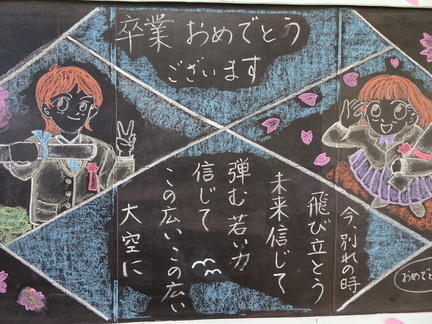 卒業おめでとう
ございます
今、別れの時
飛び立とう
未来信じて
弾む若い力
信じて
この広いこの広い
大空に